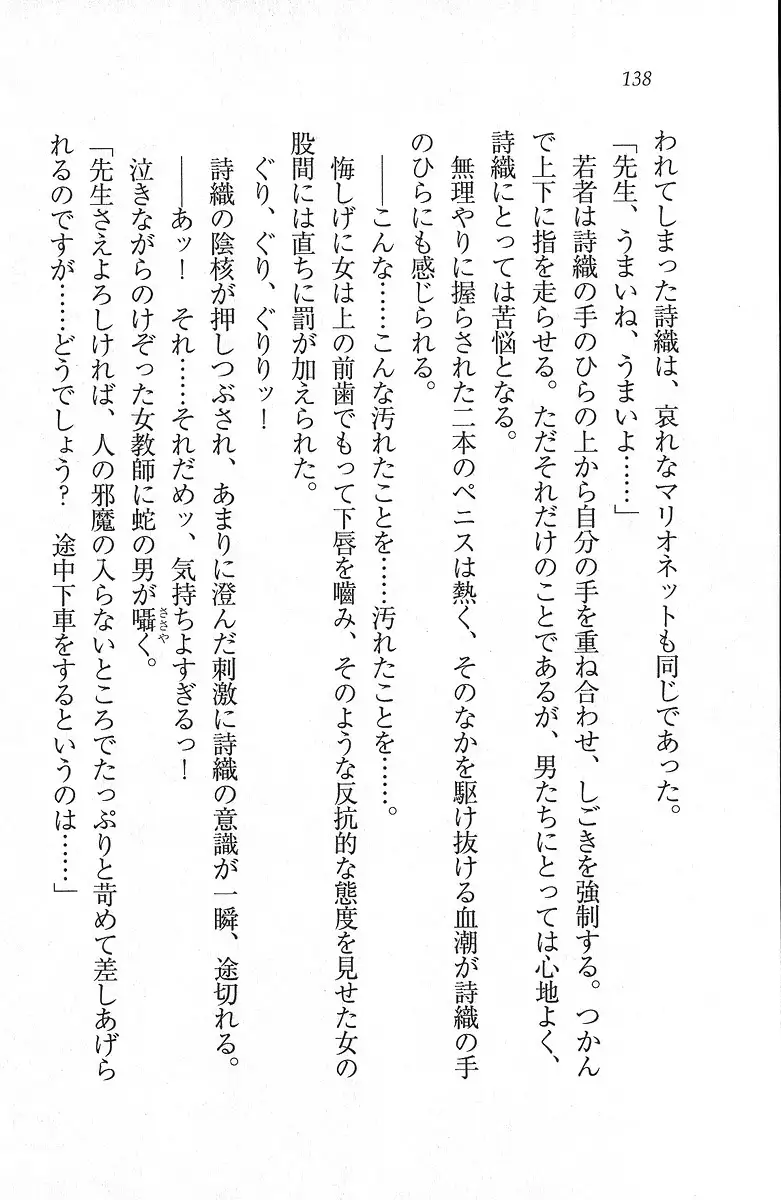 138
われてしまった詩織は、哀れなマリオネットも同じであった。
「先生、うまいね、うまいよ……」
若者は詩織の手のひらの上から自分の手を重ね合わせ、しごきを強制する。つかん
で上下に指を走らせる。ただそれだけのことであるが、男たちにとっては心地よく、
詩織にとっては苦悩となる。
無理やりに握らされた二本のペニスは熱く、そのなかを駆け抜ける血潮が詩織の手
のひらにも感じられる。
――こんな……こんな汚れたことを……汚れたことを……。
悔しげに女は上の前歯でもって下唇を噛み、そのような反抗的な態度を見せた女の
股間には直ちに罰が加えられた。
ぐり、ぐり、ぐりりッ！
詩織の陰核が押しつぶされ、あまりに澄んだ刺激に詩織の意識が一瞬、途切れる。
――あッ！　それ……それだめッ、気持ちよすぎるっ！
泣きながらのけぞった女教師に蛇の男が囁ささやく。
「先生さえよろしければ、人の邪魔の入らないところでたっぷりと苛めて差しあげら
れるのですが……どうでしょう？　途中下車をするというのは……」